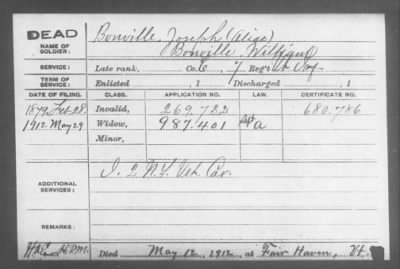 DEAD
Bonville, Joseph (Alias)
NAME OF SOLDIER:
Bonville, William
SERVICE:
Late rank, Co. C 7 Reg't Vt Inf
TERM OF SERVICE:
Enlisted , 1 Discharged , 1
DATE OF FILING. CLASS. APPLICATION NO. LAW. CERTIFICATE NO.
1879, Feb 28. Invalid, 269.732 680786
1912 May 29 Widow, 987.401
Minor,
ADDITIONAL SERVICES:
2 N.Y. Vet. Cav.
REMARKS:
Died May 12, 1912, at Fair Haven, Vt.